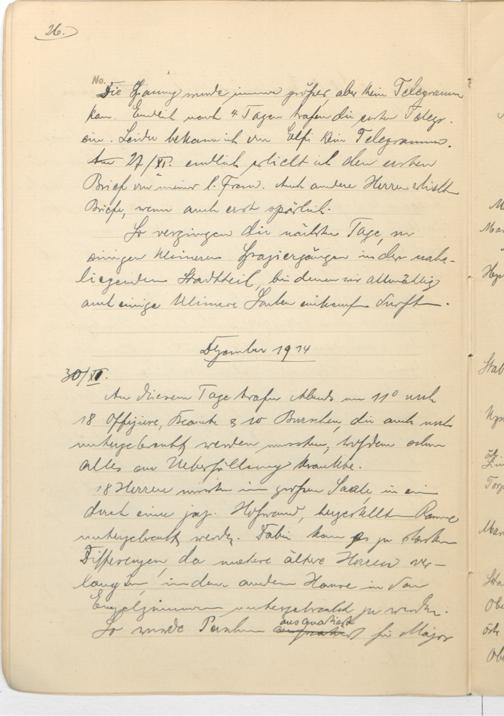 26.
No.
Die Spannung wurde immer größer, aber kein Telegramm
kam. Endlich nach 4 Tagen trafen die ersten Telegr.
ein. Leider bekam ich von Elfi kein Telegramm.
Am 27/XI. endlich erhielt ich den ersten
Brief von meiner l. Frau. Auch andere Herren erhielten
Briefe, wenn auch erst spärlich.
So vergingen die nächsten Tage, mit
einigen kleineren Spaziergängen in den nahe-
liegenden Stadtteil, bei denen wir allmählig
auch einige kleinere Sachen einkaufen durften.
Dezember 1914
30/XI.
An diesem Tage trafen Abends um 11° noch
18 Offiziere, Beamte & 10 Burschen, die auch noch
untergebracht werden mussten, trotzdem schon
alles an Ueberfüllung krankte.
18 Herren mussten im großen Saale, in ein
durch eine jap. Holzwand, hergestellten Raume
untergebracht werden. Dabei kam es zu starken
Differenzen, da mehrere ältere Herren ver-
langten, in dem anderen Hause in den
Einzelzimmern untergebracht zu werden.
So wurde ausquartiert für Major